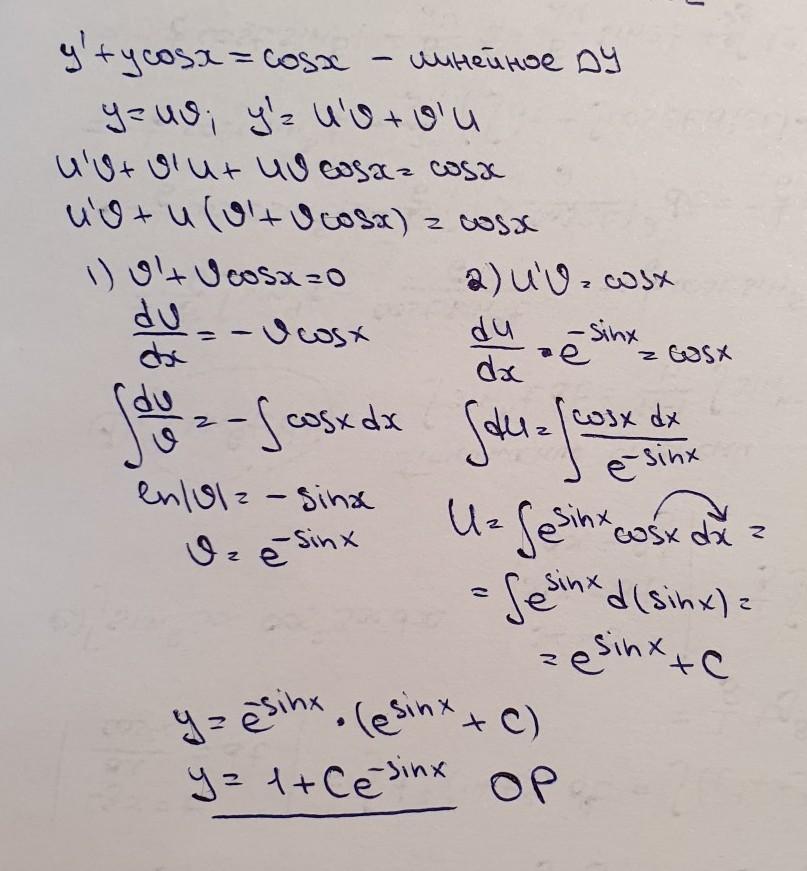 y' + y cosx = cosx – линейное ДУ
y = uv; y' = u'v + v'u
u'v + v'u + uv cosx = cosx
u'v + u(v' + v cosx) = cosx
1) v' + v cosx = 0
dv/dx = -v cosx
∫ dv/v = -∫ cosx dx
ln|v| = -sinx
v = e^(-sinx)
2) u'v = cosx
du/dx · e^(-sinx) = cosx
∫ du = ∫ cosx dx / e^(-sinx)
u = ∫ e^(sinx) cosx dx =
= ∫ e^(sinx) d(sinx) =
= e^(sinx) + C
y = e^(-sinx) · (e^(sinx) + C)
y = 1 + Ce^(-sinx) ОР